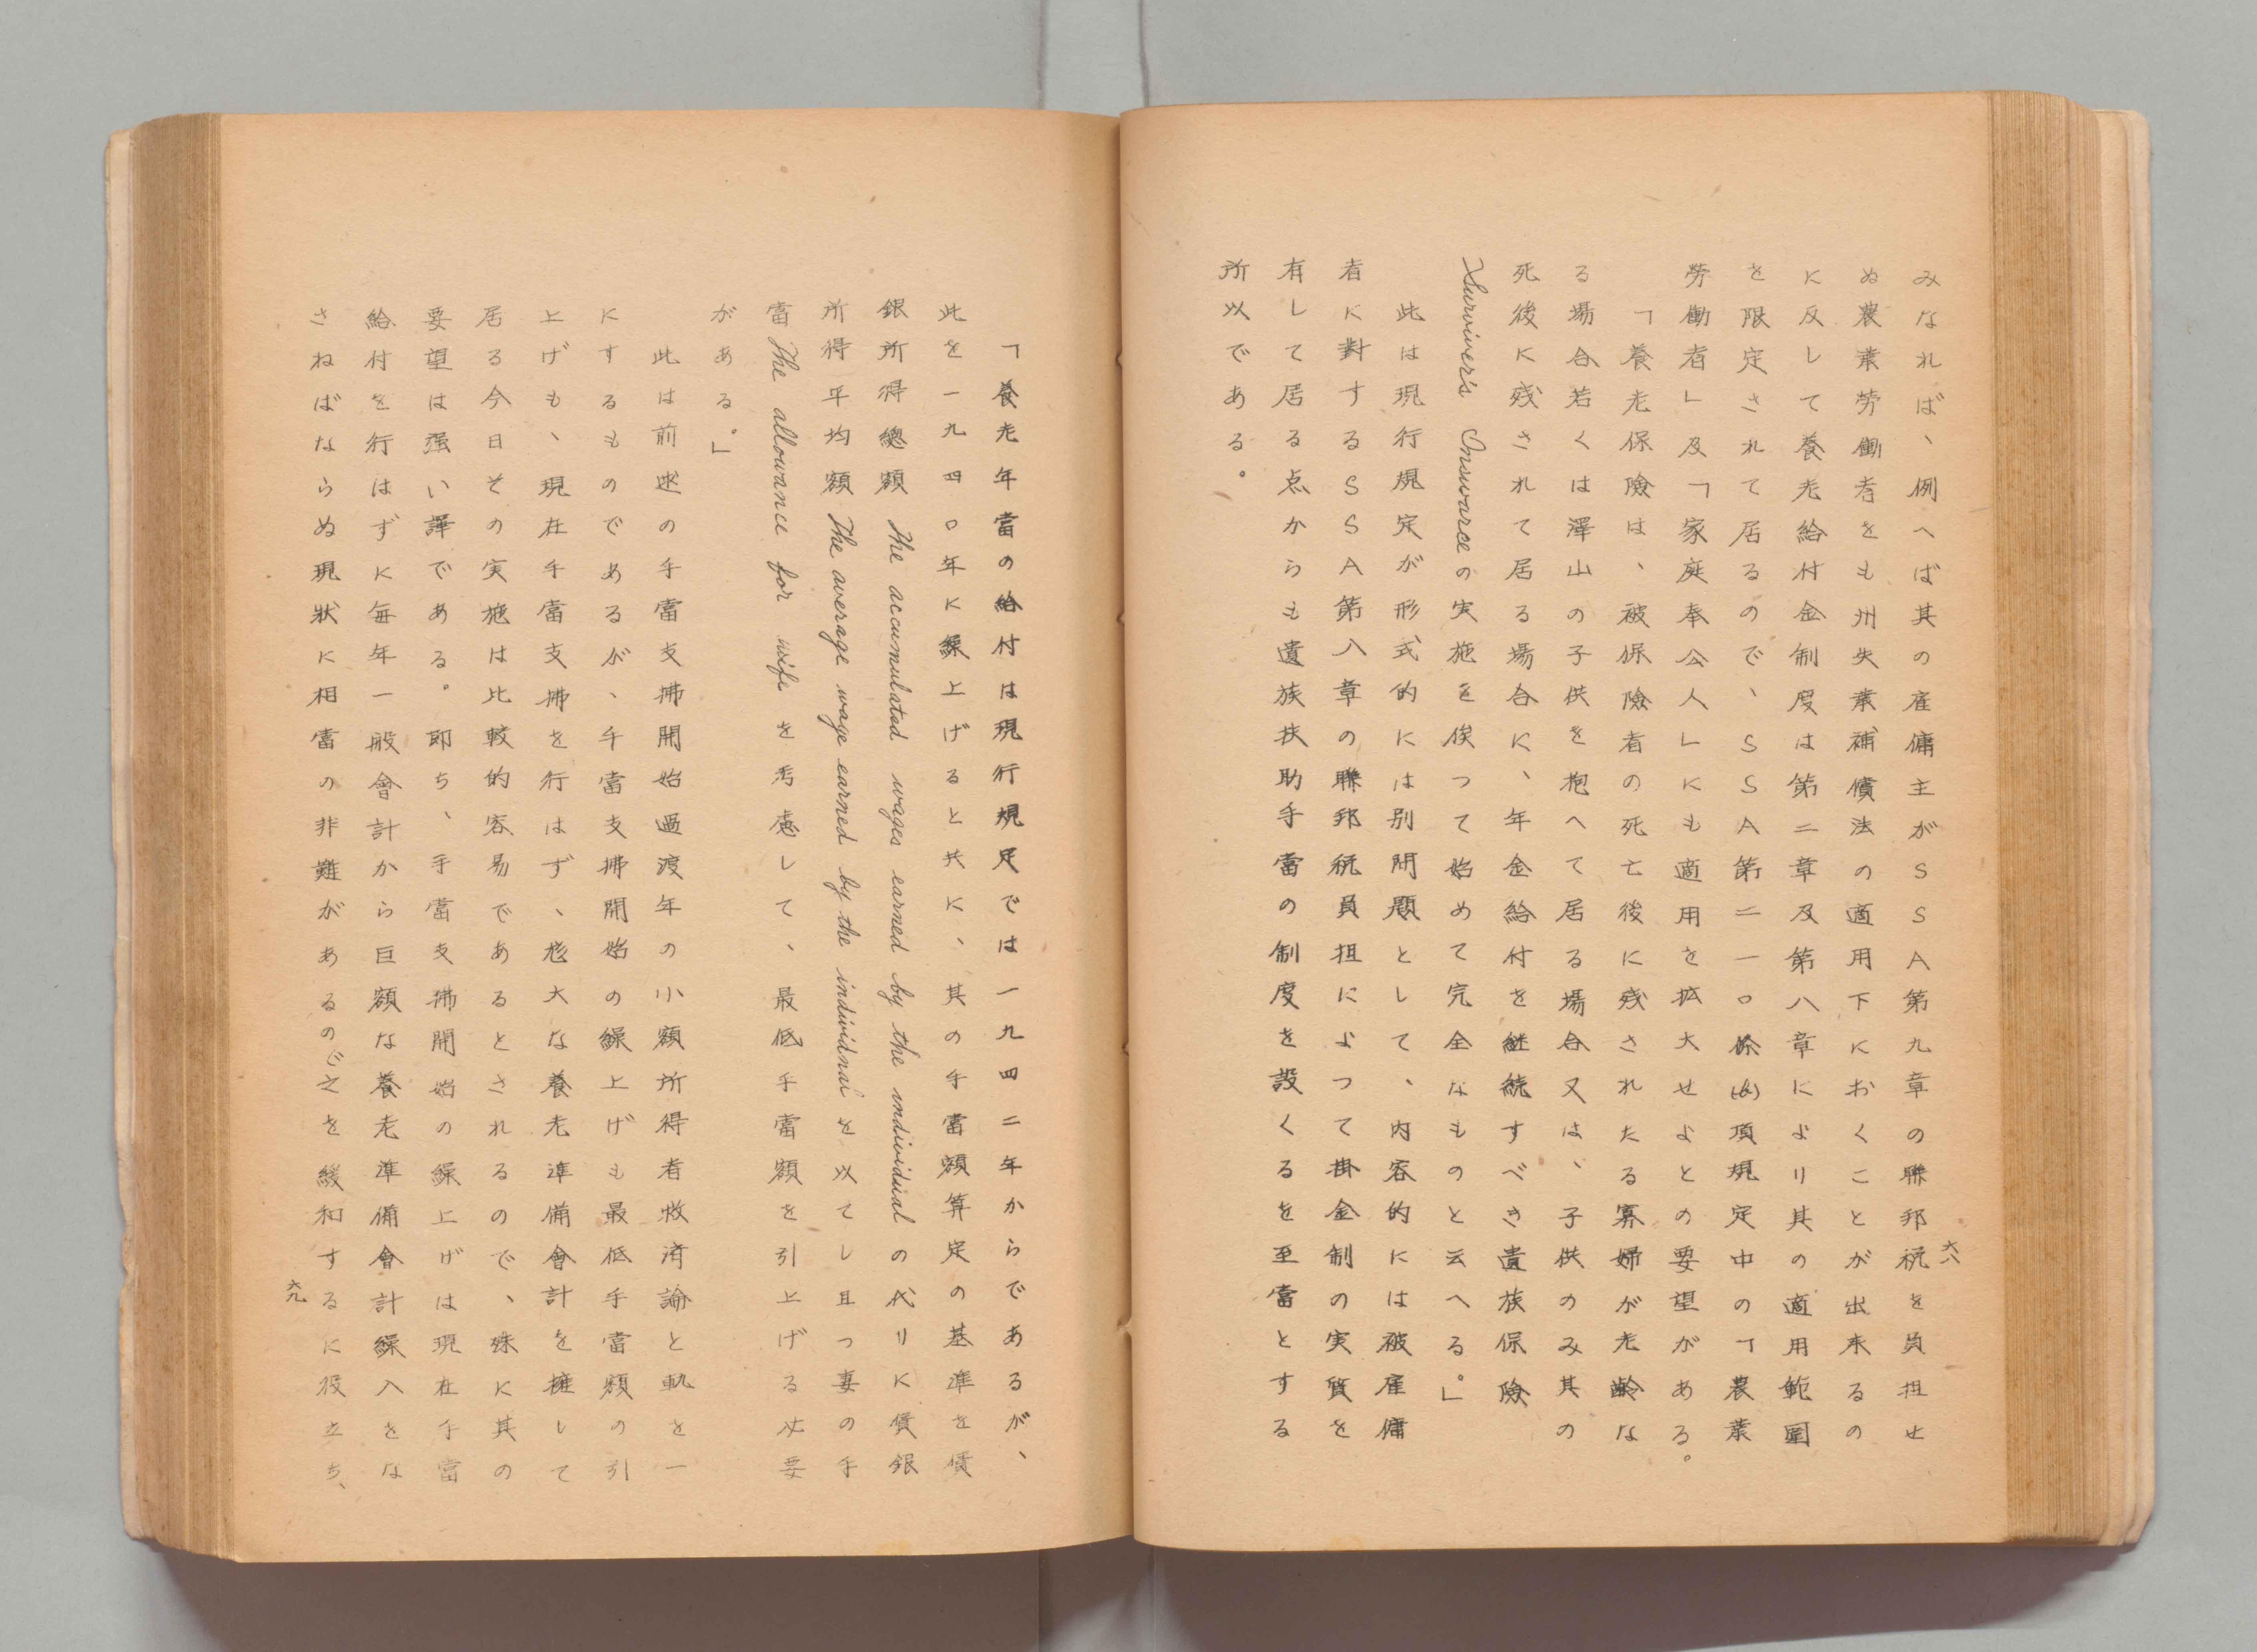 六八
みなれば、例へば其の雇傭主がＳＳＡ第九章の聯邦税を負担せ
ぬ農業労働者をも州失業補償法の適用下におくことが出来るの
に反して養老給付金制度は第二章及第八章により其の適用範圍
を限定されて居るので、ＳＳＡ第二一〇条(b)項規定中の「農業
労働者」及「家庭奉公人」にも適用を拡大せよとの要望がある。
「養老保險は、被保險者の死亡後に残されたる寡婦が老齢な
る場合若くは澤山の子供を抱へて居る場合又は、子供のみ其の
死後に残されて居る場合に、年金給付を継続すべき遺族保險
Surviver's Insurance の実施を俟つて始めて完全なものと云へる。」
此は現行規定が形式的には別問題として、内容的には被雇傭
者に對するＳＳＡ第八章の聯邦税負担によつて掛金制の実質を
有して居る点からも遺族扶助手當の制度を設くるを至當とする
所以である。
「養老年當の給付は現行規定では一九四二年からであるが、
此を一九四〇年に繰上げると共に、其の手當額算定の基準を賃
銀所得總額 The accumulated wages earned by the individual の代リに賃銀
所得平均額 The average wage earned by the individual を以てし且つ妻の手
當 The allowance for wife を考慮して、最低手當額を引上げる必要
がある。」
此は前述の手當支拂開始過渡年の小額所得者救済論と軌を一
にするものであるが、手當支拂開始の繰上げも最低手當額の引
上げも、現在手當支拂を行はず、尨大な養老準備會計を擁して
居る今日その実施は比較的容易であるとされるので、殊に其の
要望は强い譯である。即ち、手當支拂開始の繰上げは現在手當
給付を行はずに毎年一般會計から巨額な養老準備會計繰入をな
さねばならぬ現狀に相當の非難があるので之を緩和するに役立ち、
六九